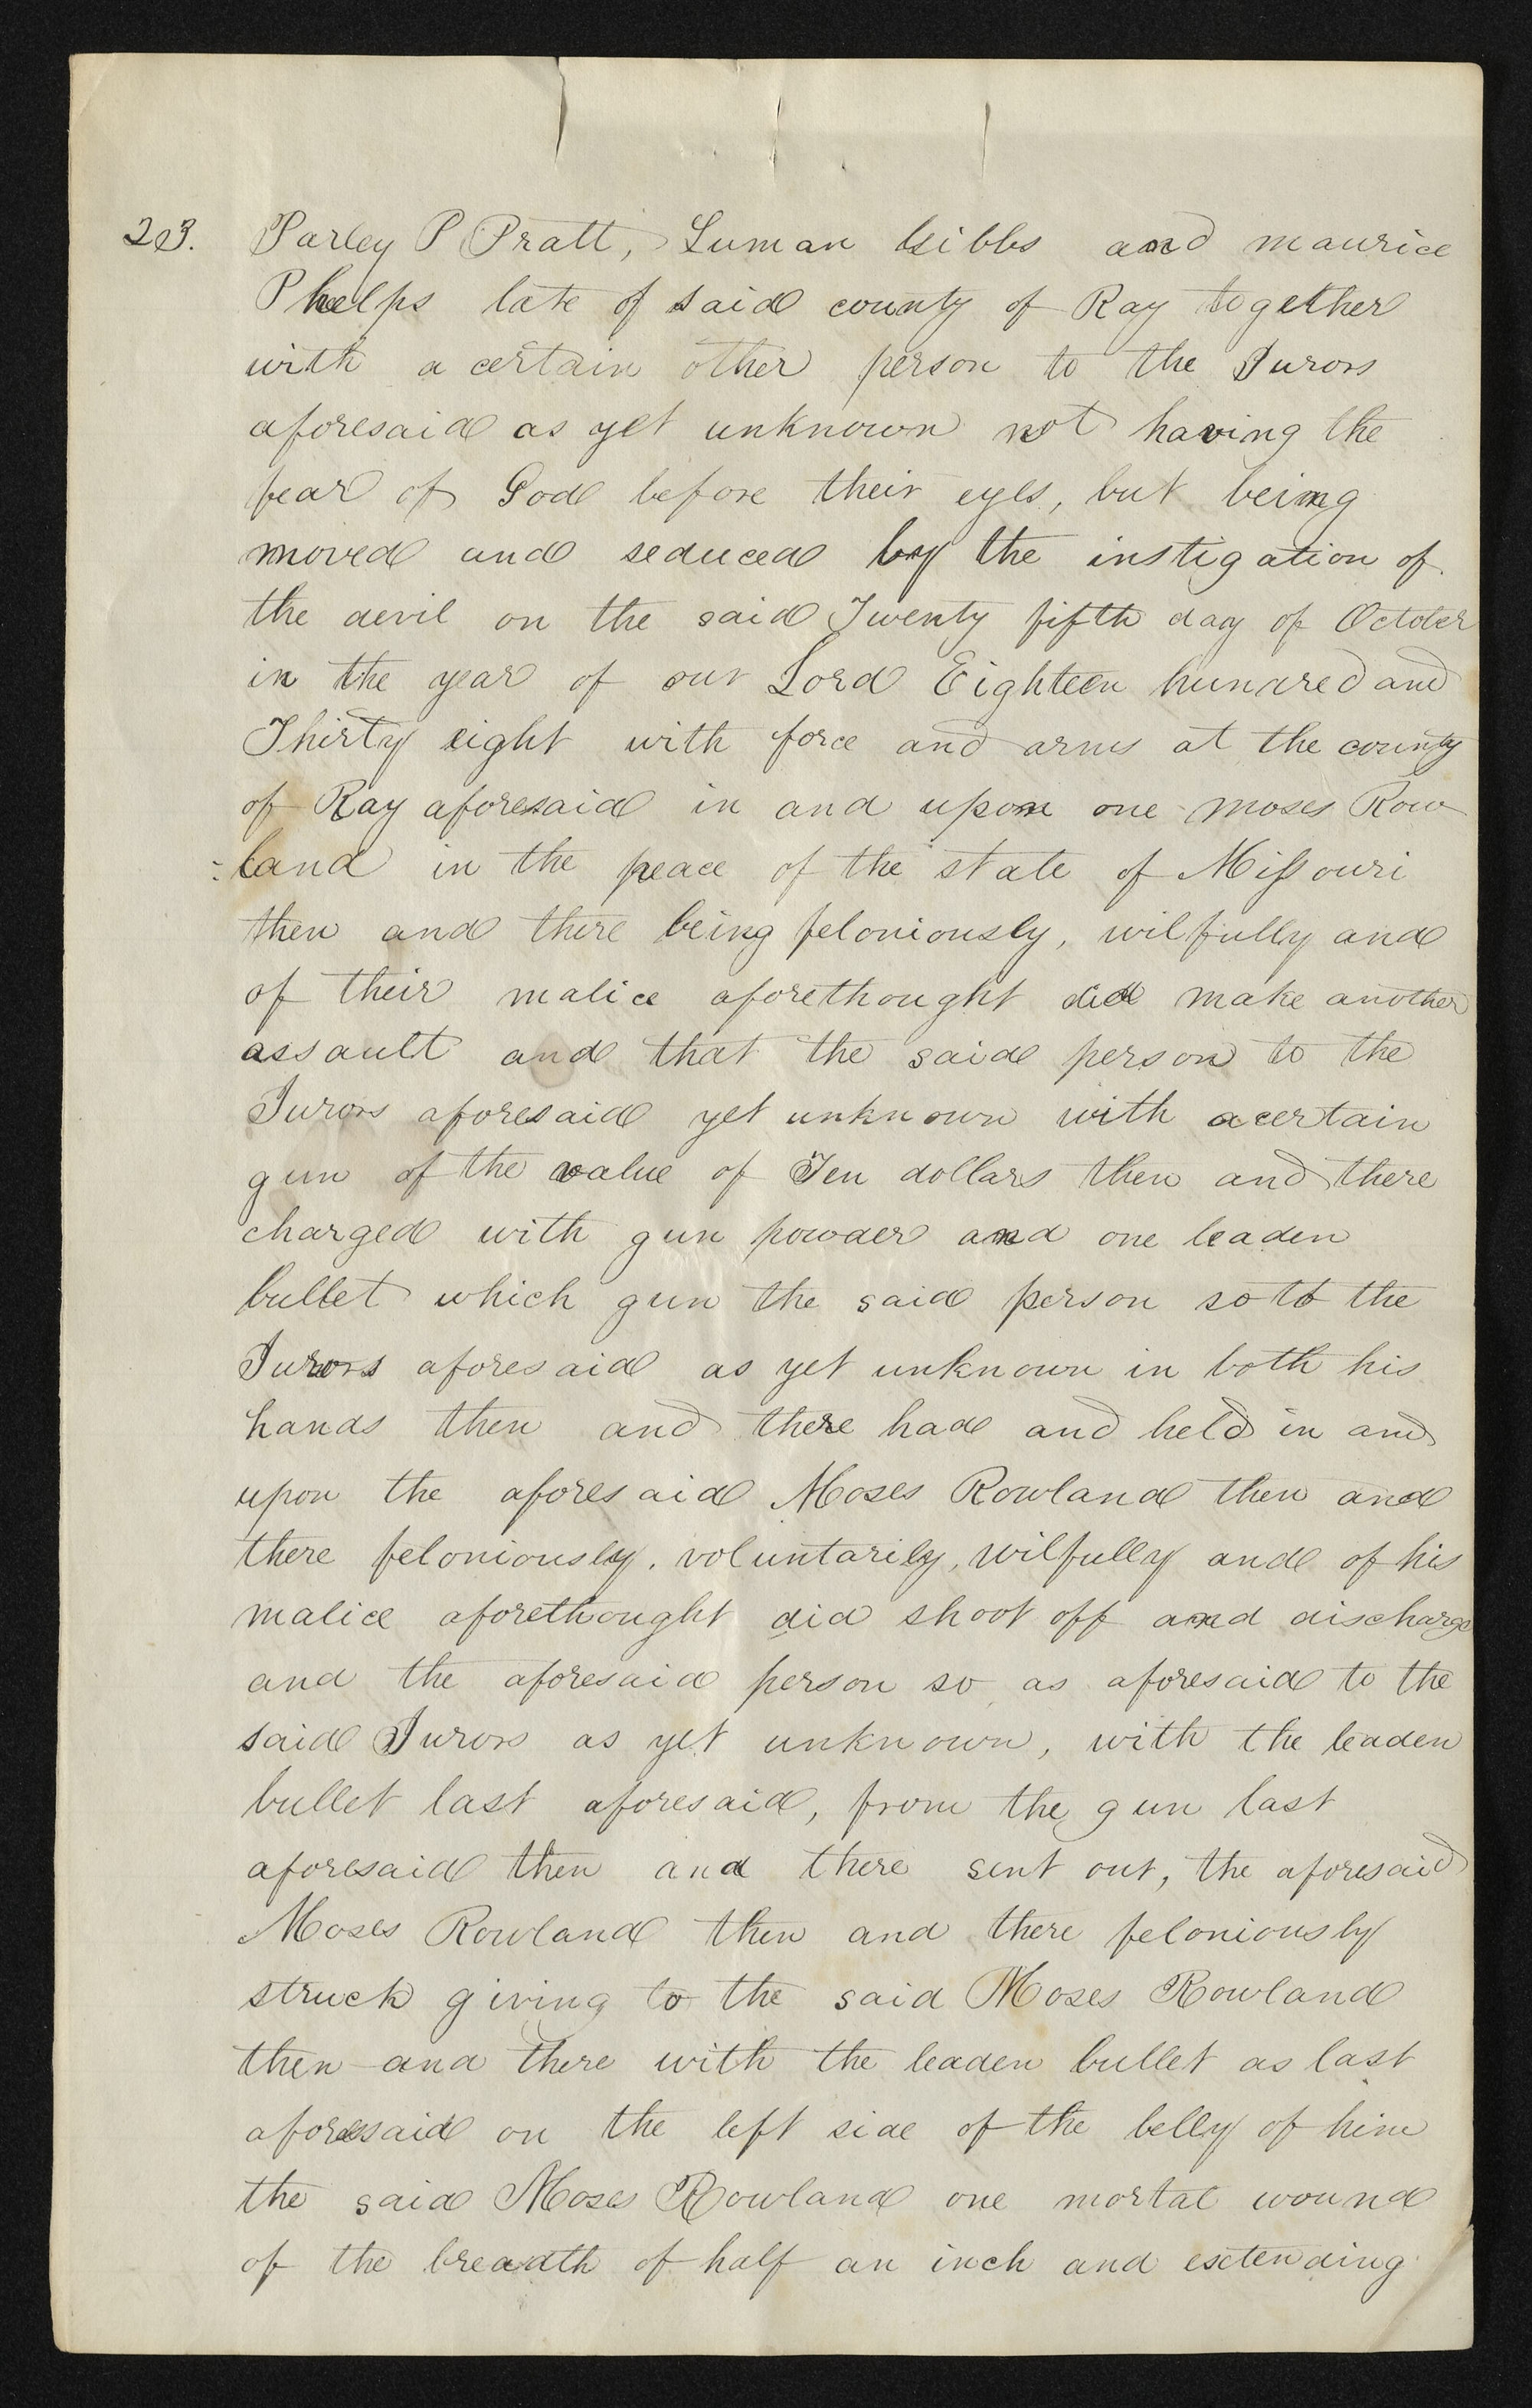 203. Parley P Pratt, Luman Gibbs and maurice
Phelps late of said county of Ray together
with a certain other person to the Jurors
aforesaid as yet unknown not having the
fear of God before their eyes, but being
moved and seduced by the instigation of
the devil on the said Twenty fifth day of October
in the year of our Lord Eighteen hundred and
Thirty eight with force and arms at the county
of Ray aforesaid in and upon one moses Row
-land in the peace of the state of Missouri
then and there being feloniously, wilfully and
of their malice aforethought did make another
assault and that the said person to the
Jurors aforesaid yet unknown with a certain
gun of the value of Ten dollars then and there
charged with gun powder and one leaden
bullet which gun the said person so to the
Jurors aforesaid as yet unknown in both his
hands then and there had and held in and
upon the aforesaid Moses Rowland then and
there feloniously, voluntarily, wilfully and of his
malice aforethought did shoot off and discharge
and the aforesaid person so as aforesaid to the
said Jurors as yet unknown, with the leaden
bullet last aforesaid, from the gun last
aforesaid then and there sent out, the aforesaid
Moses Rowland then and there feloniously
struck giving to the said Moses Rowland
then and there with the leaden bullet as last
aforesaid on the left side of the belly of him
the said Moses Rowland one mortal wound
of the breadth of half an inch and extending